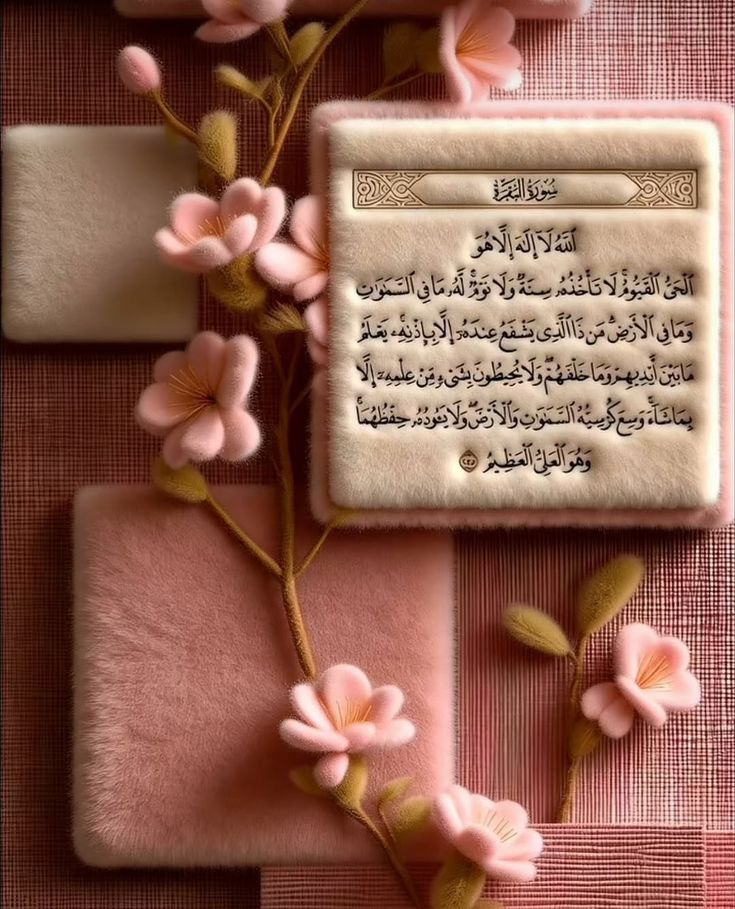 سُورَةُ البَقَرَةِ
ٱللَّهُ لَآ إِلَٰهَ إِلَّا هُوَ
ٱلْحَىُّ ٱلْقَيُّومُ ۚ لَا تَأْخُذُهُۥ سِنَةٌ وَلَا نَوْمٌ ۚ لَّهُۥ مَا فِى ٱلسَّمَٰوَٰتِ
وَمَا فِى ٱلْأَرْضِ ۗ مَن ذَا ٱلَّذِى يَشْفَعُ عِندَهُۥٓ إِلَّا بِإِذْنِهِۦ ۚ يَعْلَمُ
مَا بَيْنَ أَيْدِيهِمْ وَمَا خَلْفَهُمْ ۖ وَلَا يُحِيطُونَ بِشَىْءٍ مِّنْ عِلْمِهِۦٓ إِلَّا
بِمَا شَآءَ ۚ وَسِعَ كُرْسِيُّهُ ٱلسَّمَٰوَٰتِ وَٱلْأَرْضَ ۖ وَلَا يَـُٔودُهُۥ حِفْظُهُمَا ۚ
وَهُوَ ٱلْعَلِىُّ ٱلْعَظِيمُ